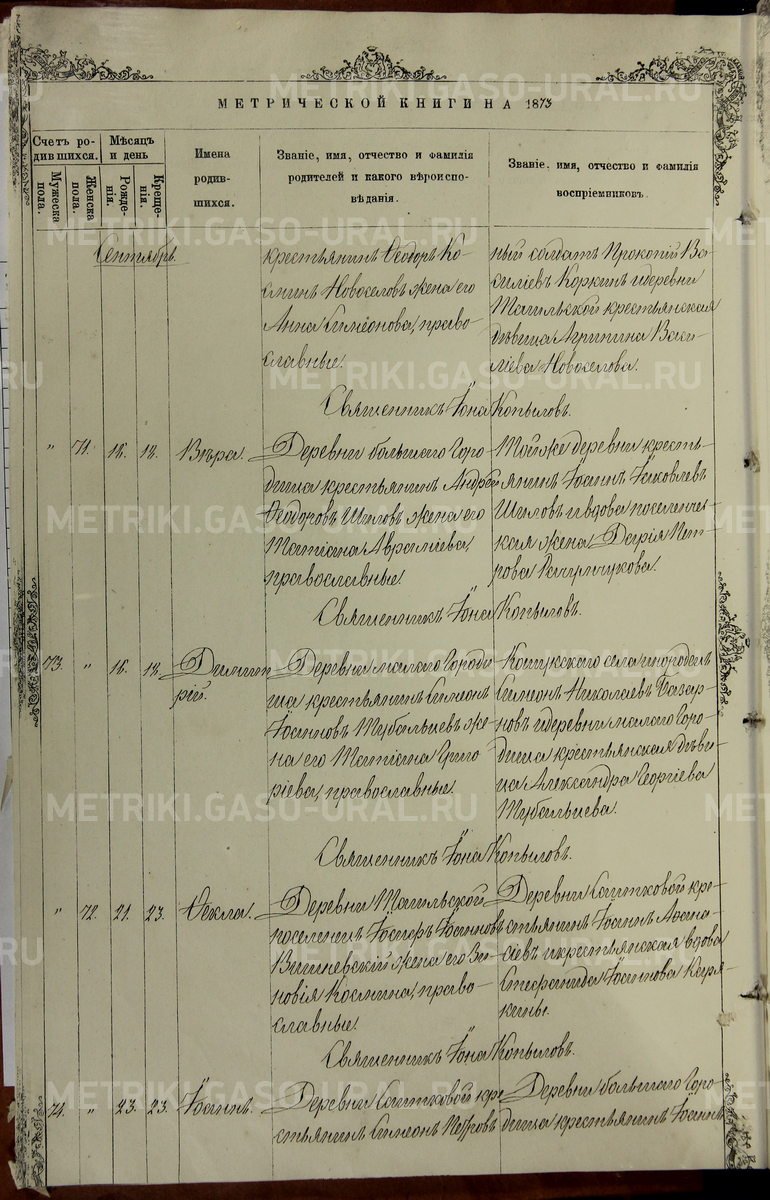 МЕТРИЧЕСКОЙ КНИГИ НА 1873
Счетъ ро-
дившихся.
Мужеска
пола.
Женска
пола.
Мѣсяцъ
и день
Рожде-
нія.
Креще-
нія.
Имена
родив-
шихся.
Званіе, имя, отчество и фамилія
родителей и какого вѣроиспо-
вѣданія.
Званіе, имя, отчество и фамилія
воспріемниковъ.
Сентябрь.
крестьянинъ Ѳеодоръ Ко-
сминъ Новоселовъ жена его
Анна Симеонова, право-
славные.
ный солдатъ Прокопій Ва-
силіевъ Коркинъ и деревни
Тагильской крестьянская
дѣвица Агрипина Васи-
ліева Новоселова.
Священникъ Іона Копыловъ.
" 71. 18. 18. Вѣра.
Деревни большаго Горо-
дища крестьянинъ Андрей
Ѳеодоровъ Шиловъ жена его
Татіана Авраміева,
православные.
Той же деревни кресть-
янинъ Іоаннъ Іаковлевъ
Шиловъ и вдова поселенчес-
кая жена Дарія Пет-
рова
Священникъ Іона Копыловъ.
73. " 18. 18. Димит-
рій.
Деревни малаго Городи-
ща крестьянинъ Симеонъ
Іоанновъ Тубальцевъ же-
на его Татіана Григо-
ріева, православные.
села инородецъ
Симеонъ Николаевъ Базар-
новъ и деревни малаго Горо-
дища крестьянская дѣви-
ца Александра Георгіева
Тубальцева.
Священникъ Іона Копыловъ.
" 72. 21. 23. Ѳекла.
Деревни Тагильской
поселенецъ Іосифъ Іоанновъ
Вишневскій жена его Зи-
новія Космина, право-
славные.
Деревни Саитковой кре-
стьянинъ Іоаннъ Аѳана-
сіевъ и крестьянская вдова
Стефанида Іоаннова Каря-
кины.
Священникъ Іона Копыловъ.
74. " 23. 23. Іоаннъ.
Деревни Саитковой кре-
стьянинъ Симеонъ Петровъ
Деревни большаго Горо-
дища крестьянинъ Іоаннъ
METRIKI.GASO-URAL.RU